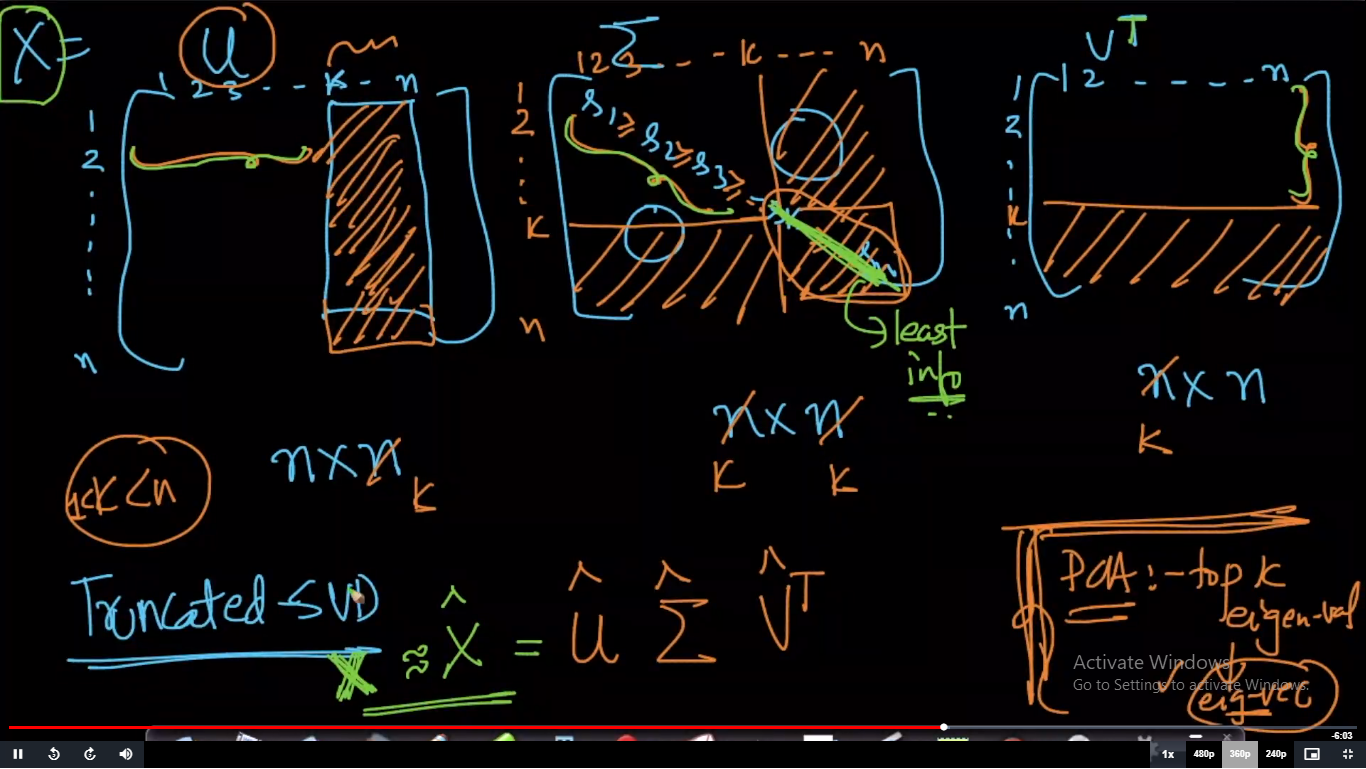 X = U Σ Vᵀ
1 2 3 - - K - n
1 2 3 - - - K - - - n
1 2 - - - - n
1
2
n
1
2
K
n
1
2
K
n
s₁ ≥ s₂ ≥ s₃ ≥ - -
sₙ
least
info
n x n
K
n x n
K K
n x n
K
1<K<n
Truncated SVD
X ≈ X̂ = Û Σ̂ V̂ᵀ
PCA :- top K
eigen-val
eig-vec
Activate Windows
Go to Settings to activate Windows.
-6:03
1x 480p 360p 240p